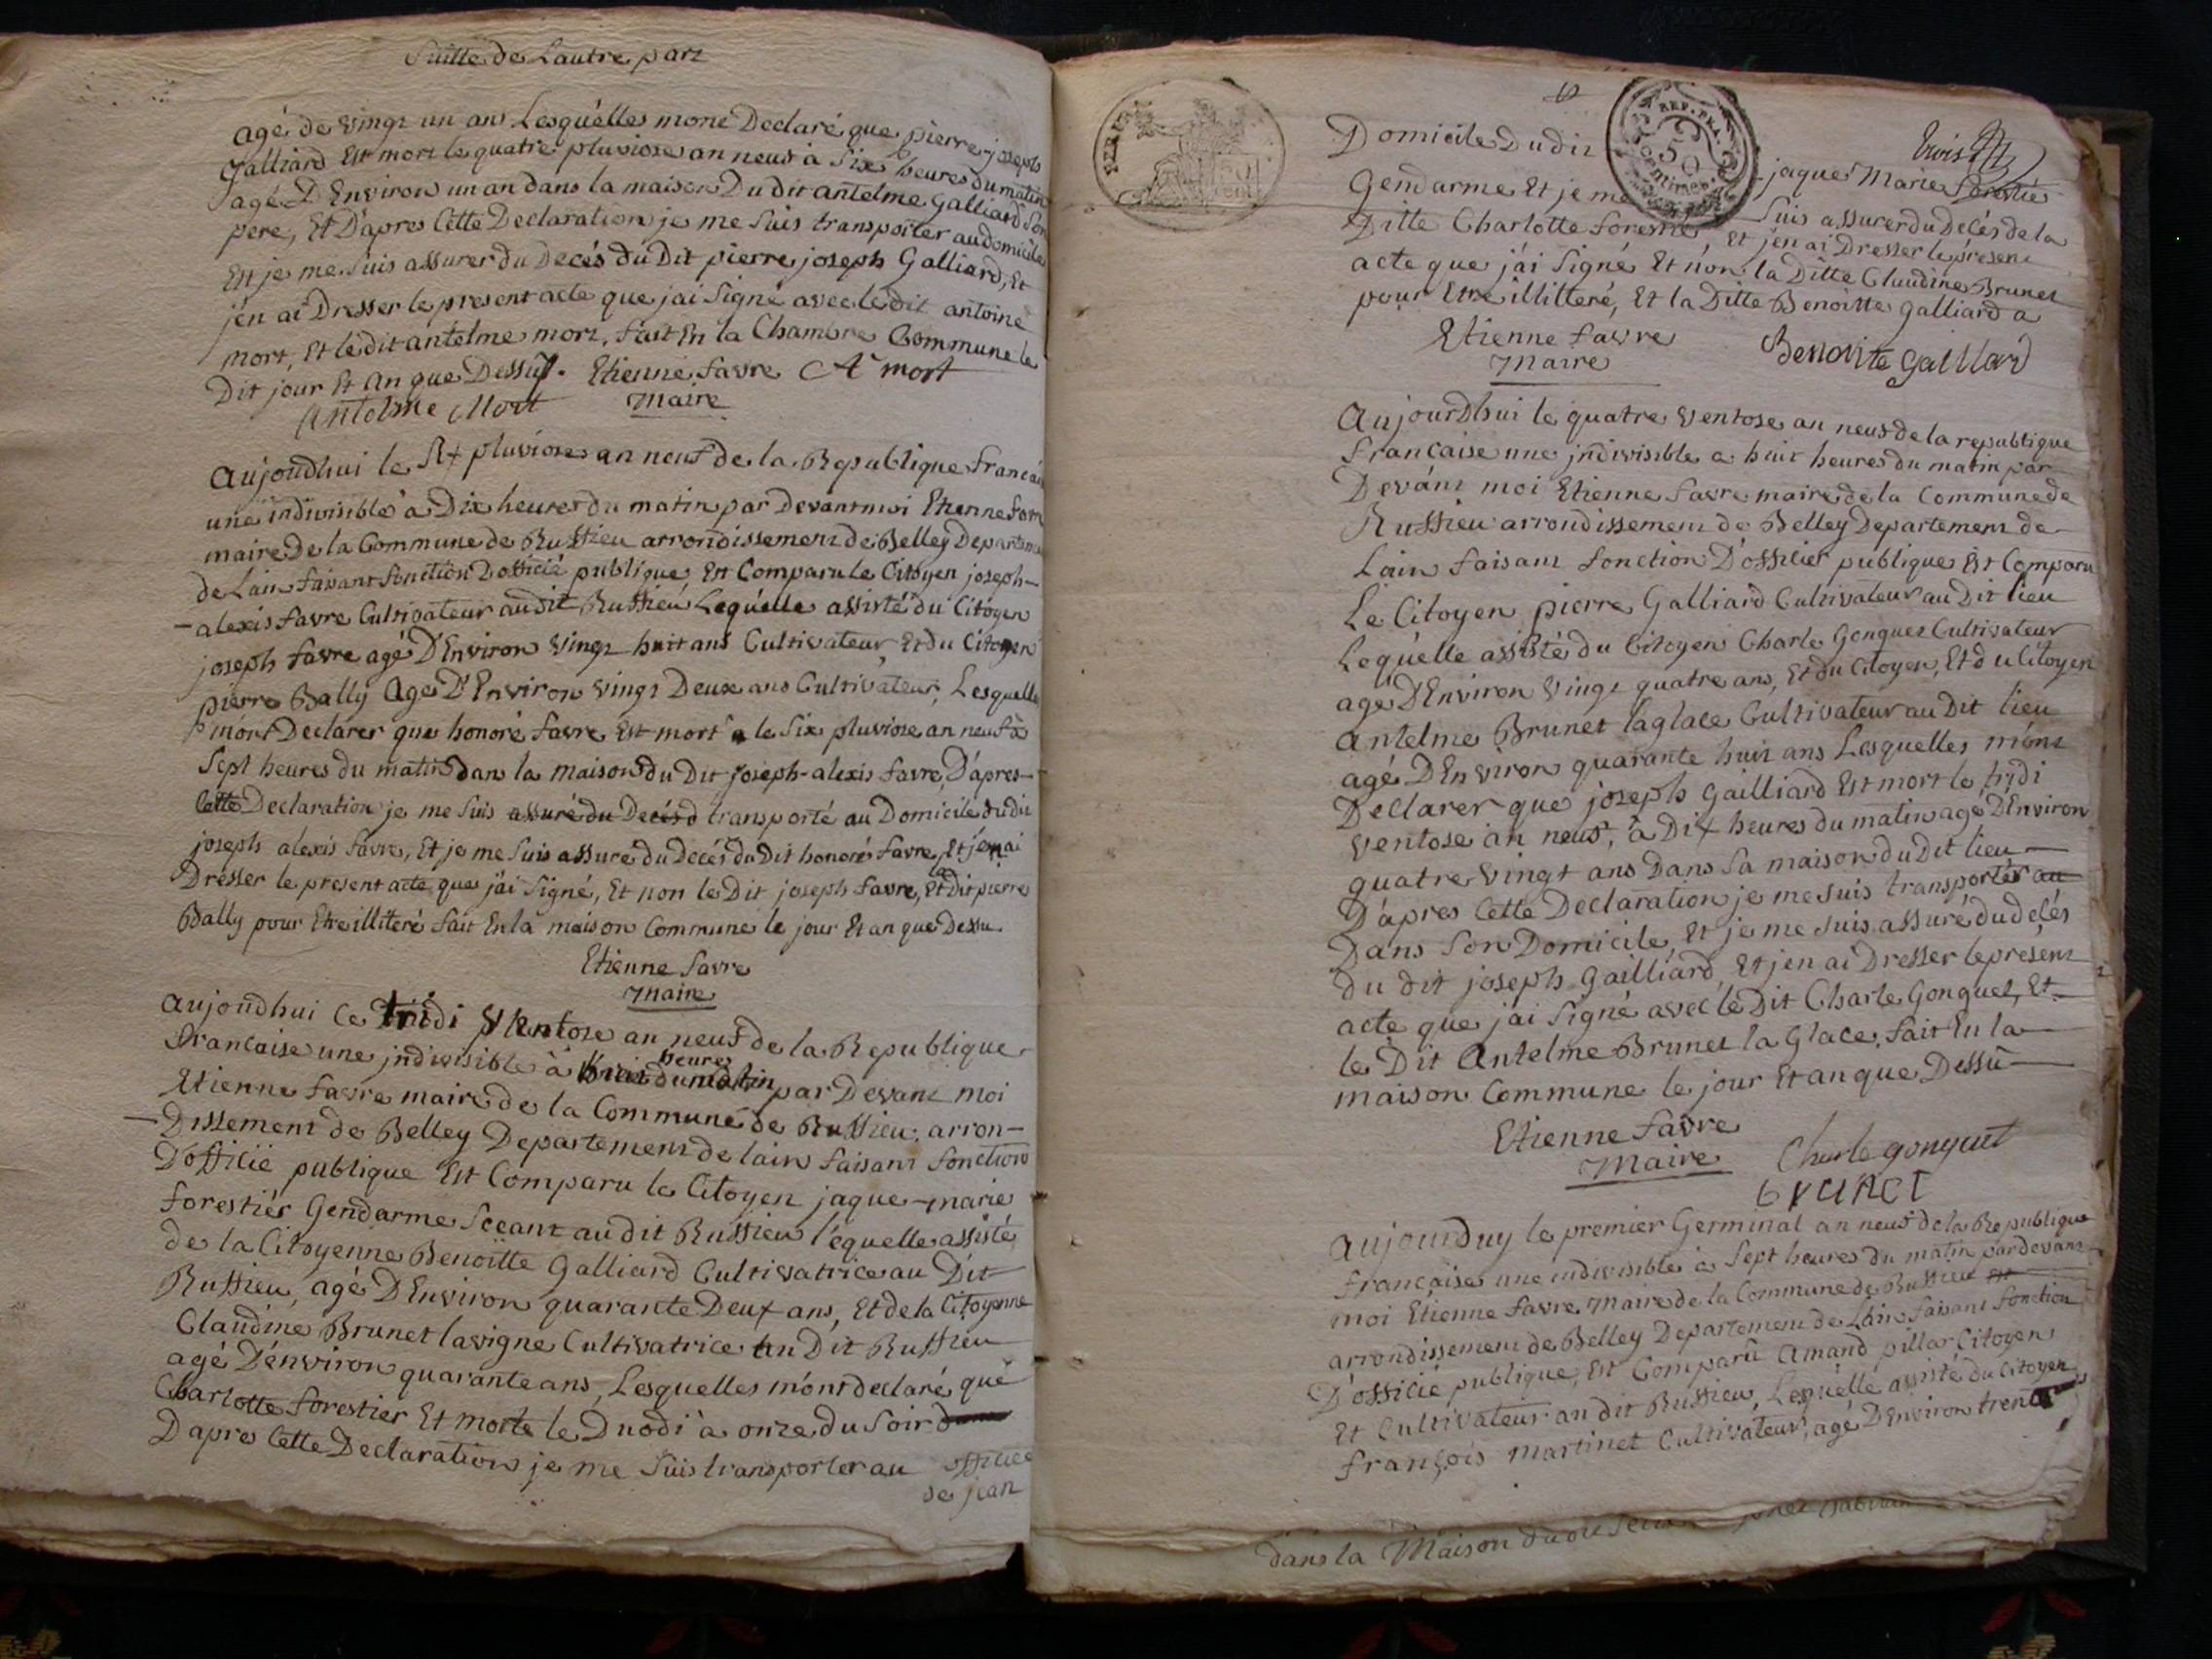 Suitte de Lautre part
agé de vingt un ans Lesquélles mont Declaré que pierre-joseph
Galliard Est mort le quatre pluviose an neuf à Six heures du matin
agé D'Environ un an dans la maison Du dit antelme galliard Son
pere, Et D'apres Cette Declaration je me Suis transporter au domicile
Et je me Suis assurer du Decés du Dit pierre joseph Galliard, Et
jén ai Dresser le present acte que jai Signé avec le dit antoine
mort, Et le dit antelme mort, fait En la Chambre Commune le
Dit jour Et an que Dessus. Etienne favre At mort
Antelme Mort maire
aujoudhui le Six pluviose an neuf de la Republique francai
une indivisible à Dix heures du matin par Devant moi Etienne favr
maire De la Commune de Ruffieu arrondissement de Belley Departem
de Lain faisant fonction D'officié publique, Est Comparu Le Citoyen joseph-
alexis favre Cultivateur audit Ruffieu Lequélle assisté du Citoyen
joseph favre agé D'Environ Vingt huit ans Cultivateur Et du Citoyen
pierre Bally Agé D'Environ vingt Deux ans Cultivateur, Lesquelle
m'ont Declarer que honoré favre Est mort le Six pluviose an neuf à
Sept heures du matin dans la maison du Dit joseph-alexis favre, D'apres-
Cette Declaration je me Suis assuré du Decés d transporté au Domicile dudit
joseph alexis favre, Et je me Suis assuré du Decés du Dit honoré favre, Et jén ai
Dresser le present acte que j'ai Signé, Et non le Dit joseph favre, Et le Dit pierre
Bally pour Etre illiteré fait En la maison Commune le jour Et an que Dessu
Etienne favre
maire
aujoudhui le tridi Ventose an neuf de la Republique
francaise une jndivisible à heures du matin par Devant moi
Etienne favre maire de la Commune de Ruffieu, arron-
Dissement de Belley Departement de lain faisant fonction
D'officié publique Est Comparu le Citoyen jaque-marie
forestiér Gendarme Sceant audit Ruffieu l'équelle assisté
de la Citoyenne Benoitte Galliard Cultivatrice au Dit
Ruffieu, agé D'Environ quarante Deux ans, Et de la Citoyenne
Claudine Brunet lavigne Cultivatrice au Dit Ruffieu
agé D'énviron quarante ans, Lesquelles m'ónt declaré que
Charlotte forestier Et morte le Duodi à onze du Soir
D apres Cette Declaration je me Suis transporter au
de jean
Domicile Du dit jaque Marie forestier
Gendarme Et je me Suis assurer du Decés de la
Ditte Charlotte forestier, Et jén ai Dresser le présent
acte que j'ai Signé Et nón la Ditte Claudine Brunet
pour Etre illitteré, Et la Ditte Benoitte galliard a
Etienne favre Benoite gaillard
maire
REP. FRA.
50
Aujourdhui le quatre Ventose an neuf de la republique
francaise une jndivisible a huit heures du matin par
Devánt moi Etienne favre maire de la Commune de
Ruffieu arrondissement de Belley Departement de
Lain faisant fonction D'officier publique Est Comparu
Le Citoyen pierre Galliard Cultivateur au Dit lieu
Lequélle assisté du Citoyen Charle Gonguet Cultivateur
agé D'Environ Vingt quatre ans, Et du Citoyen, Et du Citoyen
Antelme Brunet laglace Cultivateur au Dit lieu
agé D'Environ quarante huit ans Lesquelles m'ónt
Declarer que joseph gailliard Est mort le tridi
Ventose an neuf, à Dix heures du matin agé D'Environ
quatre Vingt ans Dans Sa maison du Dit lieu
D'apres Cette Declaration je me suis transporter au
Dans Son Domicile, Et je me Suis assuré du deçés
du dit joseph gailliard, Et jen ai Dresser le present
acte que jai Signé avec le Dit Charle Gonguet, Et
le Dit Antelme Brunet la Glace. fait En la
maison Commune le jour Et an que Dessu
Etienne favre
Maire Charle gonguet
brunet
Aujourduy le premier Germinal an neuf de la Republique
française une indivisible à Sept heures du matin pardevant
moi Etienne favre Maire de la Commune de Ruffieu Est
arrondissement de Belley Departement de Lain faisant fonction
D'officié publique, Est Comparu Amand pillar Citoyen
Et Cultivateur au dit Ruffieu, Lequélle assisté du Citoyen
françois martinet Cultivateur, agé D'Environ trente
dans la Maison du dit